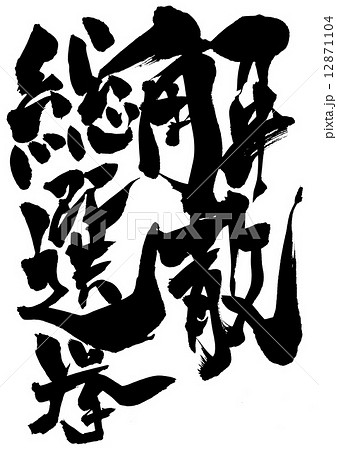 解散
総選挙
PIXTA
pixta.jp - 12871104